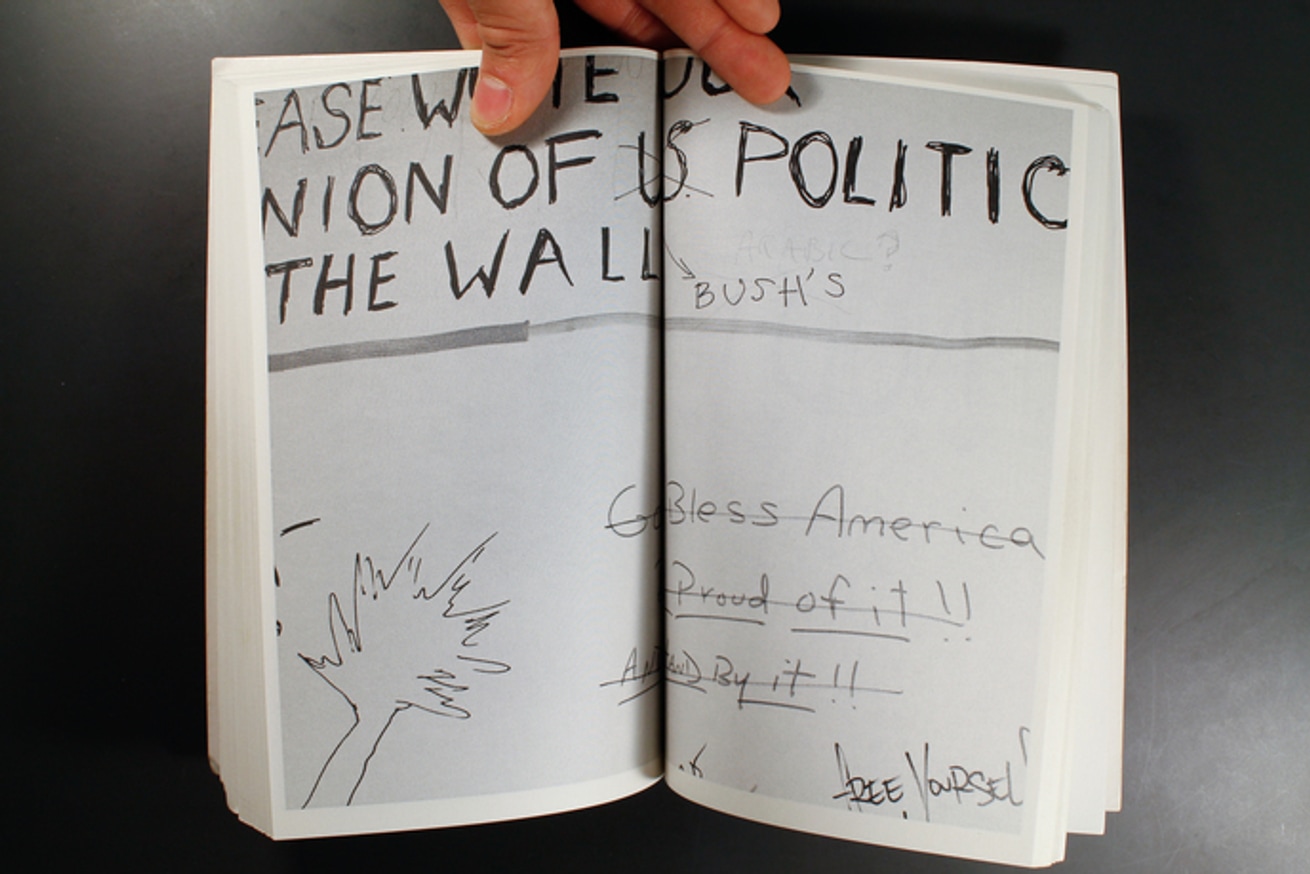 EASE WRITE YOUR
NION OF US POLITIC
THE WALL
ARABIC?
BUSH'S
Bless America
Proud of it !!
AND By it !!
FREE YOURSEL